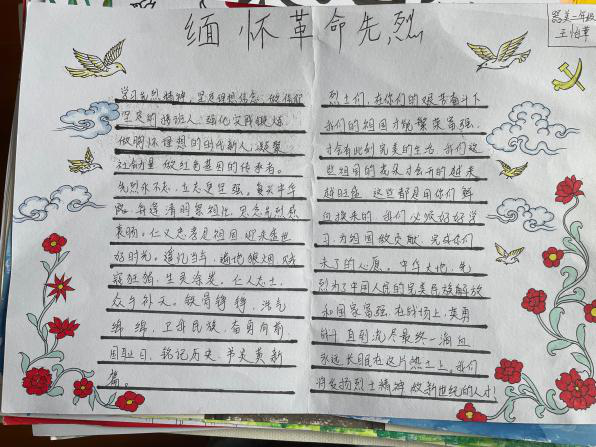 缅怀革命先烈
二年级
学习先烈精神，坚定理想信念，做信仰
坚定的人，强化实践锻炼
做胸怀理想的时代新人，凝聚
社会力量做红色基因的传承者。
先烈永不忘，立志更坚强。
路，每逢清明祭祖地，思念先烈慈
衷肠。仁义忠孝是祖国迎来盛世
好时光。遥记当年，遍地狼烟，
寇猖獗，生灵涂炭。仁人志士，
众手补天。铁骨铮铮，浩气
绵绵，卫我民族，奋勇向前，
国耻日，铭记历史，书炎黄新
篇。
烈士们，在你们的艰苦奋斗下
我们的祖国才能繁荣富强，
才会有此刻完美的生活，我们这
些祖国的花朵才会开的越来
越旺盛，这些都是用你们鲜
血换来的，我们必须好好学
习，为祖国做贡献，完成你们
未了的心愿。中华大地，先
烈为了中国人民的完美民族解放
和国家富强，在战场上，英勇
斗直到流尽最终一滴血
永远长眠在这片热土上。我们
将发扬烈士精神做新世纪的人才！